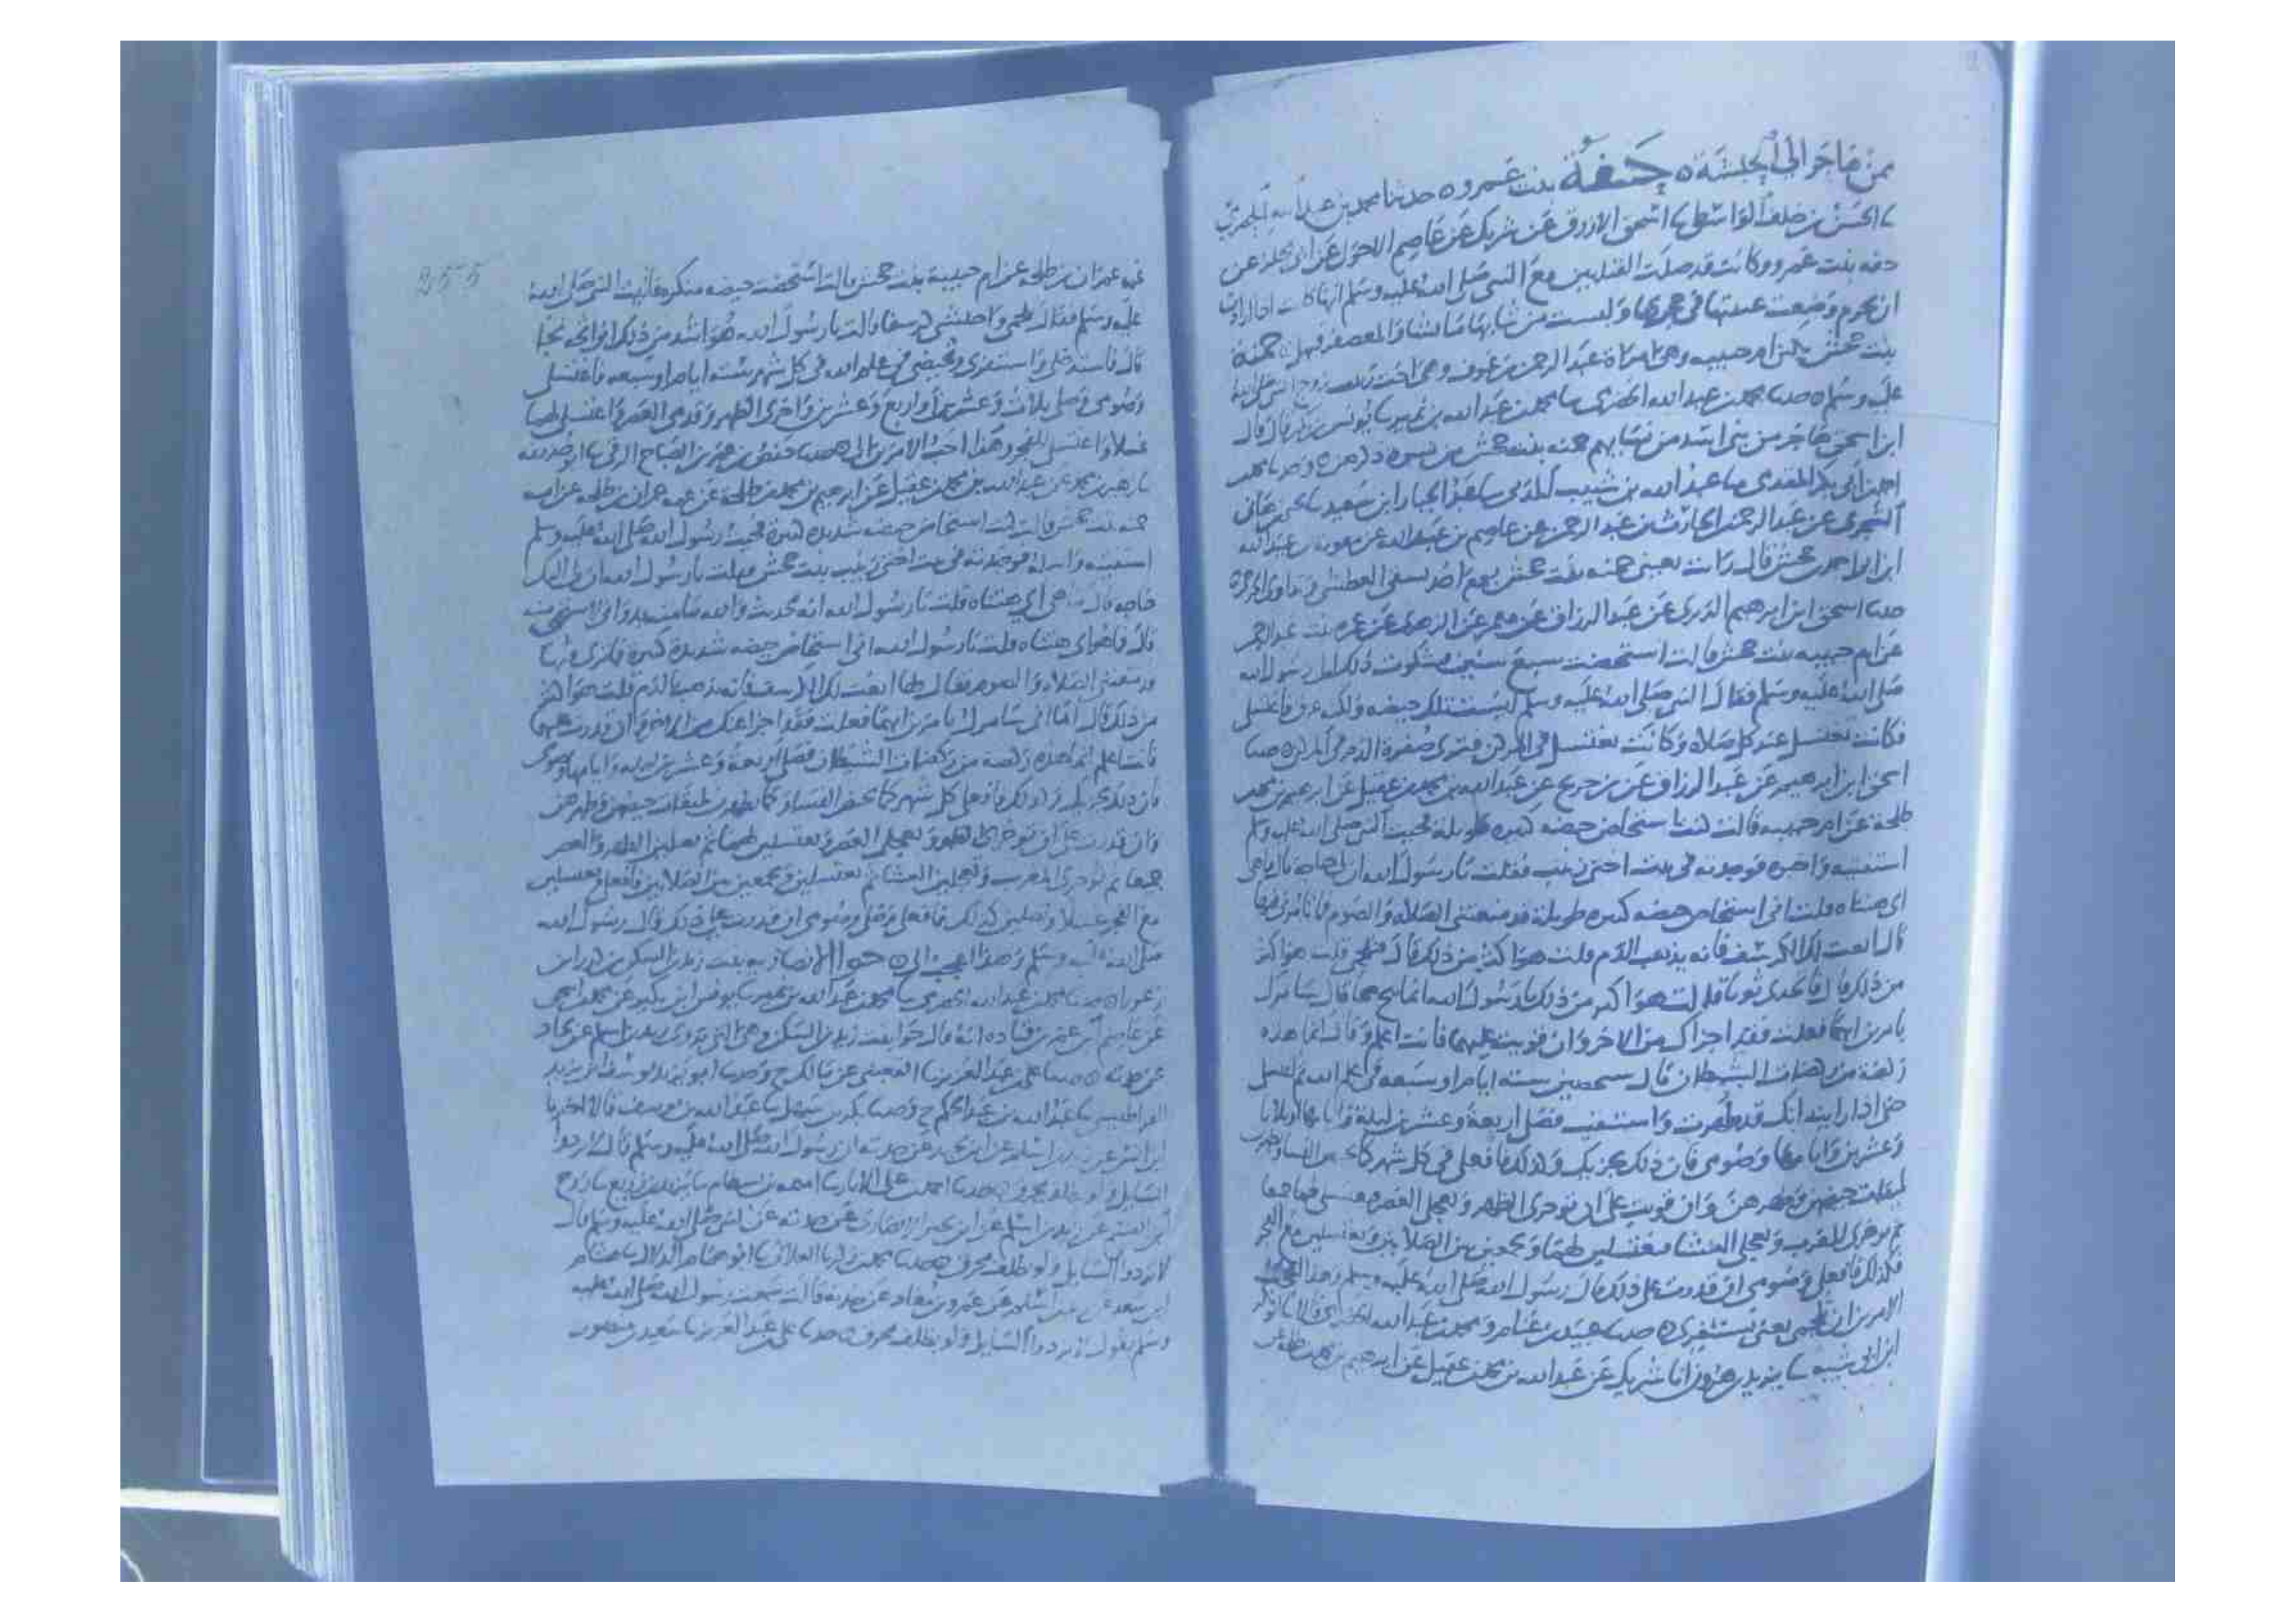 ممن هاجر الى الحبشة ه حفة بنت عمرو ه حدثنا محمد بن عبد الله
الحسن بن خلف الواسطي اسحق الازرق عن شريك عن عاصم الاحول عن ابي مجلز عن
حفه بنت عمرو وكانت قد صلت القبلتين مع النبي صلى الله عليه وسلم انها كانت اذا ارادت
ان تحرم وضعت عيبتها في حجرها ولبست من ثيابها ما تشا والمعصفر فيهن حمنة
بنت جحش تكنى ام حبيبه وهي امراة عبد الرحمن بن عوف وهي اخت زينب زوج النبي صلى الله
عليه وسلم ه حدثنا محمد بن عبد الله الحضرمي سا محمد بن عبد الله بن نمير سا يونس بن بكير قال قال
ابن اسحق هاجر من بني اسد من نسائهم حمنه بنت جحش وحدثنا محمد
ابن ابي بكر المقدمي سا عبد الله بن شبيب المدني سا عبد الجبار ابن سعيد يحيى
الشجري عن عبد الرحمن الحارث بن عبد الرحمن عن عاصم بن عبد الله عن
قال رايت يعني حمنه بنت جحش يوم احد تسقي العطشى وتداوي الجرحى
حدثنا اسحق ابن ابرهيم الدبري عن عبد الرزاق عن معمر عن الزهري عن عمرة بنت عبد الرحمن
عن ام حبيبه بنت جحش قالت استحضت سبع سنين فشكوت ذلك الى رسول الله
صلى الله عليه وسلم فقال النبي صلى الله عليه وسلم ليست تلك حيضه ولكنه عرق فاغتسلي
فكانت تغتسل عند كل صلاه وكانت تغتسل في المركن فترى صفرة الدم في المركن حدثنا
اسحق ابن ابرهيم عن عبد الرزاق عن بن جريج عن عبد الله بن محمد بن عقيل عن ابرهيم بن محمد
طلحة عن ام حبيبه قالت كنت استحاض حيضه كبيره طويلة فجيت النبي صلى الله عليه وسلم
استفتيه واخبره فوجدته في بيت اختي زينب فقلت يا رسول الله ان لي حاجة قال ما هي
اي هنتاه قلت اني استحاض حيضه كبيره طويلة قد منعتني الصلاه والصوم فما تامرني فيها
قال انعت لك الكرسف فانه يذهب الدم قلت هو اكثر من ذلك قال فتلجمي قلت هو اكثر
من ذلك قال فاتخذي ثوبا قلت هو اكثر من ذلك يا رسول الله انما اثج ثجا قال سامرك
بامرين ايهما فعلت فقد اجزاك من الاخر وان قويت عليهما فانت اعلم وقال انما هذه
ركضة من ركضات الشيطان قال تحيضين سته ايام او سبعه في علم الله ثم اغتسلي
حتى اذا رايت انك قد طهرت واستنقيت فصلي اربعة وعشرين ليلة وايامها او ثلاثا
وعشرين وايامها وصومي فان ذلك يجزيك وكذلك فافعلي في كل شهر كما تحيض النساء
لميقات حيضهن وطهرهن وان قويت على ان توخري الظهر وتعجلي العصر فتغتسلي لهما جمعا
ثم توخري المغرب وتعجلي العشا فتغتسلين لهما وتجمعين بين الصلاتين وتغتسلين مع الفجر
فكذلك فافعلي وصومي ان قدرت على ذلك قال رسول الله صلى الله عليه وسلم وهذا اعجب
الامرين الي تلجمي يعني تستثفري ه حدثنا عبيد بن غنام ومحمد بن عبد الله الحضرمي قالا سا ابو بكر
ابن ابي شيبه سا يزيد بن هرون انا شريك عن عبد الله بن محمد بن عقيل عن ابرهيم بن محمد بن طلحة عن
255
عمه عمران بن طلحه عن ام حبيبة بنت جحش قالت استحضت حيضه منكره فاتيت النبي صلى الله
عليه وسلم فقال تلجمي واحتشي كرسفا قالت يا رسول الله هو اشد من ذلك اني اثجه ثجا
قال فاستدخلي واستثفري وتحيضي في علم الله في كل شهر سته ايام او سبعه فاغتسلي
وصومي وصلي ثلاث وعشرين او اربع وعشرين واخري الظهر وقدمي العصر واغتسلي لهما
غسلا واغتسلي للفجر وهذا احب الامرين الي ه حدثنا حفص بن عمر بن الصباح الرقي سا ابو حذيفه
سا زهير بن محمد عن عبد الله بن محمد بن عقيل عن ابرهيم بن محمد بن طلحة عن عمه عمران بن طلحه عن امه
حمنه بنت جحش قالت كنت استحاض حيضه شديده كبيرة فجيت رسول الله صلى الله عليه وسلم
استفتيه واساله فوجدته في بيت اختي زينب بنت جحش فقلت يا رسول الله ان لي اليك
حاجه قال ما هي اي هنتاه قلت يا رسول الله انه لحديث والله ما منه بد واني لاستحي منه
قال فما هو اي هنتاه قلت يا رسول الله اني استحاض حيضه شديدة كبيره فما ترى فيها
قد منعتني الصلاه والصوم فقال لها انعت لك الكرسف فانه يذهب الدم قلت هو اكثر
من ذلك قال اما اني سامرك بامرين ايهما فعلت فقد اجزا عنك من الاخر وان قدرت عليهما
فانت اعلم انما هذه ركضة من ركضات الشيطان فصلي اربعة وعشرين ليله وايامها وصومي
فان ذلك يجزيك وكذلك فافعلي كل شهر كما تحيض النساء وكما يطهرن لميقات حيضهن وطهرهن
وان قدرت على ان توخري الظهر وتعجلي العصر وتغتسلين لهما ثم تصلين الظهر والعصر
جمعا ثم توخري المغرب وتعجلين العشا ثم تغتسلين وتجمعين بين الصلاتين فافعلي وتغتسلين
مع الفجر غسلا وتصلين كذلك فافعلي وصلي وصومي ان قدرت على ذلك وقال رسول الله
صلى الله عليه وسلم وهذا اعجب الي ه حوا الانصاريه بنت زيد بن السكن بن كرز بن
زعورا ه حدثنا محمد بن عبد الله الحضرمي سا محمد بن عبد الله بن نمير سا يونس ابن بكير عن محمد بن اسحق
عن عاصم ابن عمر بن قتاده انه قال حوا بنت زيد بن السكن وهي التي يروي زيد بن اسلم عن بجاد
عن جدته ه حدثنا علي بن عبد العزيز سا القعنبي عن مالك ح وحدثنا ابو يزيد يوسف بن يزيد
القراطيسي سا عبد الله بن عبد الحكم ح وحدثنا بكر بن سهل سا عبد الله بن يوسف قالا اخبرنا
عن زيد بن اسلم عن ابن بجيد عن جدته ان رسول الله صلى الله عليه وسلم قال ردوا
السايل ولو بظلف محرق ه حدثنا احمد بن علي الابار سا اميه بن بسطام سا يزيد بن زريع سا روح
ابن القسم عن زيد بن اسلم عن ابن بجيد الانصاري عن جدته عن النبي صلى الله عليه وسلم قال
لا تردوا السايل ولو بظلف محرق ه حدثنا محمد بن زكريا الغلابي سا ابو همام الدلال سا هشام
ابن سعد عن زيد بن اسلم عن عمرو بن معاد عن جدته قالت سمعت رسول الله صلى الله عليه
وسلم يقول ردوا السايل ولو بظلف محرق ه حدثنا علي بن عبد العزيز سا سعيد بن منصور